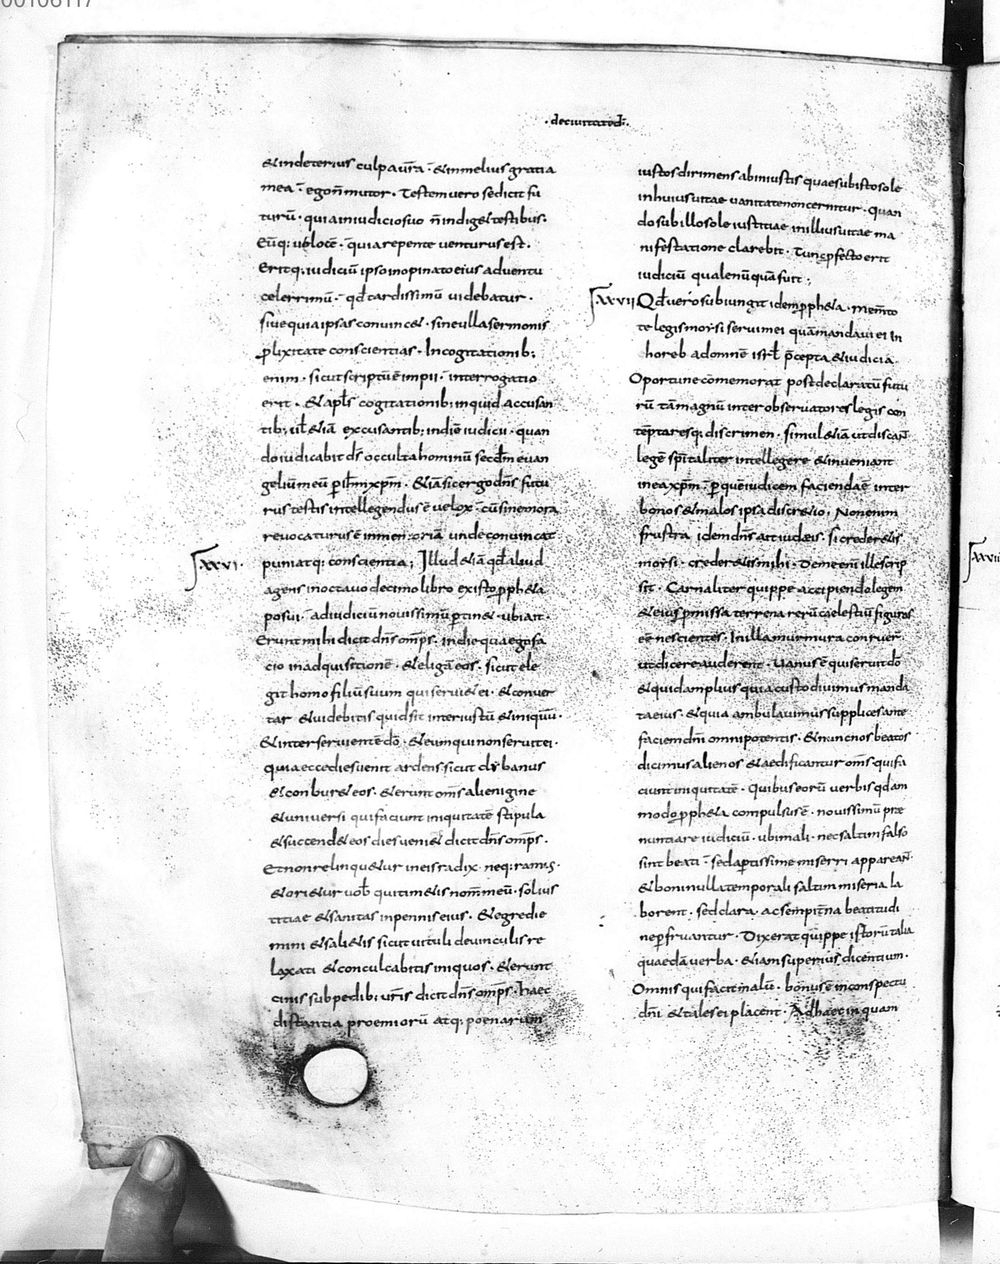 00106117
· deciuitated̄i ·
&indeterius culpaur̄a · &inmelius gratia
mea · egon̄mutor · Testemuero sedicit fu
turū · quiainiudiciosuo n̄indig&testibus ·
Eūq; ueloce · quiarepente uenturusest ·
Eritq; iudiciū ipsoinopinatoeius aduentu
celerrimū · qd̄tardissimū uidebatur ·
siuequiaipsas conuinc& · sineullasermonis
ꝓlixitate conscientias · Incogitationib;
enim · sicutscriptūēimpii · interrogatio
erit · &apl̄s cogitationib; inquid accusan
tib; ul̄&iā excusantib; indieiudicii · quan
doiudicabit d̄s occultahominū secd̄meuan
geliūmeū ꝑih̄mxp̄m · &iāsicergodn̄s futu
rustestis intellegendusē uelox · cūsinemora
reuocaturusē inmemoriā undeconuincat
puniatq; conscientiā; Illud&iā qd̄aliud
xxvi ·
agens inoctauodecimolibro exisꝓph&a
posui · adiudiciūnouissimūꝑtin& · ubiait ·
Eruntmihi dicit dn̄s omp̄s · indiequaegofa
cio inadquisitionē · &eligāeos · sicutele
git homofiliūsuum quiseruit ei · &conuer
tar &uidebitis quidsit interiustū &iniquū ·
&interseruientēd̄o · &eumquinonseruitei ·
quiaeccediesuenit ardenssicut clybanus
&conbur&eos · &erunt om̄salienigine
&uniuersi quifaciunt iniquitatē stipula
&succend&eos diesueniens dicit dn̄s omp̄s ·
Etnonrelinqu&ur ineisradix · neq; ramus ·
&ori&ur uob̄ quitim&is nom̄meū · solius
titiae &sanitas inpenniseius · &egredie
mini &sali&is sicutuituli deuinculisre
laxati &conculcabitis iniquos · &erunt
cinis subpedib; ur̄is dicit dn̄s omp̄s · haec
distantia proemiorū atq; poenarum
iustosdirimens abiniustis quaesubistosole
inhuiusuitae uanitatenoncernitur · quan
dosubillosole iustitiae inilliusuitae ma
nifestatione clarebit · Tuncꝓfectoerit
iudiciū qualenūquāfuit ;
xxvii
Qd̄uerosubiungit idemꝓph&a · memto
te legismorsi seruimei quāmandaui ei In
horeb adomnē isrl̄ p̄cepta &iudicia ·
Oportunecōmemorat postdeclaratū futu
rū tāmagnū inter obseruatoreslegis con
tēptaresq; discrimen · simul&iā utdiscant
legē spītaliter intellegere &inueniant
ineaxp̄m · ꝑquēiudicem faciendaē inter
bonos &malos ipsadiscr&io; Nonenim
frustra idemdn̄s aitiudeis · sicreder&is
morsi · creder&ismihi · Demeenī illescrip
sit · Carnaliter quippe accipiendolegem
&eiuspmissa terrena rerūcaelestiū figuras
eē nescientes · Inillamurmura conruer
utdicereauderent · Uanusē quiseruitd̄o
&quidamplius quiacustodiuimus manda
taeius · &quia ambulauimussupplicesante
faciemdn̄i omnipotentis · &nuncnos beatos
dicimusalienos &aedificantur om̄s quifa
ciuntiniquitatē · Quibuseorū uerbis qdam
modoꝓph&a compulsusē · nouissimū prae
nuntiare iudiciū · ubimali · necsaltimfalso
sint beati · sedaptissime miserri appareant
&boninullatemporali saltim miseria la
borent · sedclara · acsempit̄na beatitudi
neꝑfruantur · Dixerat quippe istorūtalia
quaedāuerba · &iamsuperius dicentium ·
Omnis quifacitmalū · bonusē inconspectu
dn̄i &talesei placent · Adhaecinquam